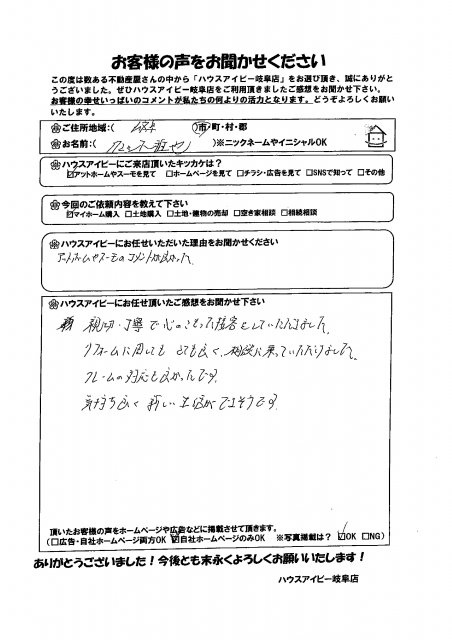 お客様の声をお聞かせください
この度は数ある不動産屋さんの中から「ハウスアイビー岐阜店」をお選び頂き、誠にありがと
うございました。ぜひハウスアイビー岐阜店をご利用頂きましたご感想をお聞かせ下さい。
お客様の幸せいっぱいのコメントが私たちの何よりの活力となります。どうぞよろしくお願い
いたします。
ご住所地域:( 岐阜 )市・町・村・郡
お名前:( )※ニックネームやイニシャルOK
ハウスアイビーにご来店頂いたキッカケは?
☑アットホームやスーモを見て □ホームページを見て □チラシ・広告を見て □SNSで知って □その他
今回のご依頼内容を教えて下さい
☑マイホーム購入 □土地購入 □土地・建物の売却 □空き家相談 □相続相談
ハウスアイビーにお任せいただいた理由をお聞かせください
アットホームやスーモのコメントが良かった。
ハウスアイビーにお任せ頂いたご感想をお聞かせ下さい
親切・丁寧で心のこもった接客をしていただけました。
リフォームに関しても とても良く、相談に乗っていただけました。
クレームの対応も良かったです。
気持ち良く 新しい生活ができそうです。
頂いたお客様の声をホームページや広告などに掲載させて頂きます。
(□広告・自社ホームページ両方OK ☑自社ホームページのみOK ※写真掲載は? ☑OK □NG)
ありがとうございました!今後とも末永くよろしくお願いいたします!
ハウスアイビー岐阜店